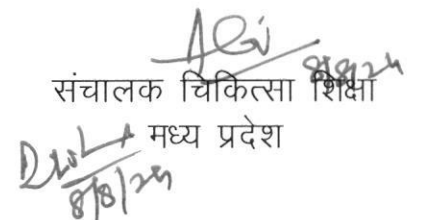 8/8/24
संचालक चिकित्सा शिक्षा
मध्य प्रदेश
8/8/24